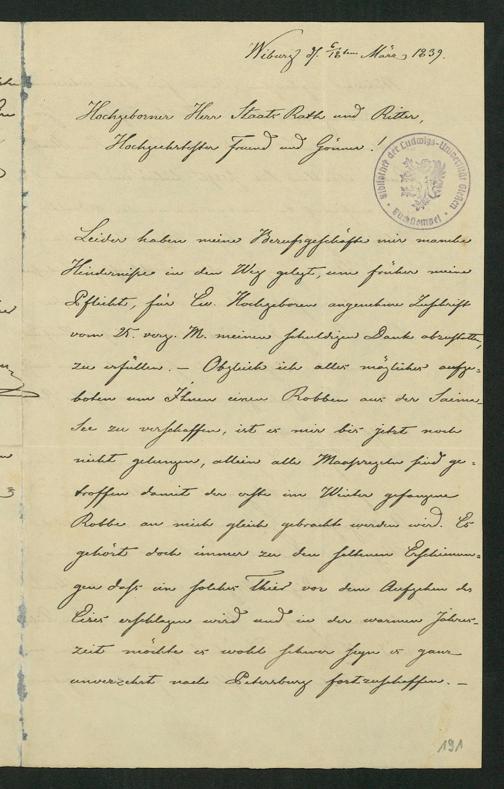 Wiburg d. 6/18ten März 1839.
Hochgeborner Herr Staats Rath und Ritter,
Hochgeehrtester Freund und Gönner!
Bibliothek der Ludwigs-Universität Giessen
Leider haben meine Berufsgeschäfte mir manche
Hindernisse in den Weg gelegt, um früher meine
Pflicht, für Ew. Hochgeboren angenehme Zuschrift
vom 25. vorg. M. meinen schuldigen Dank abzustatten,
zu erfüllen. — Obgleich ich alles mögliche aufge-
boten um Ihnen einen Robben aus der Saima-
See zu verschaffen, ist es mir bis jetzt noch
nicht gelungen, allein alle Maasregeln sind ge-
troffen damit der erste im Winter gefangene
Robbe an mich gleich gebracht werden wird. Es
gehört doch immer zu den seltenen Erscheinun-
gen dass ein solches Thier vor dem Aufgehen des
Eises erschlagen wird und in der warmen Jahres-
zeit möchte es wohl schwer seyn es ganz
unversehrt nach Petersburg fortzuschaffen. —
191